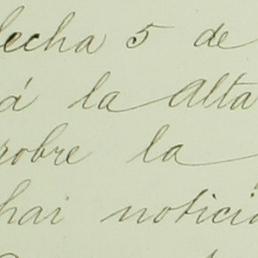 fecha 5 de
á la Alta
sobre la
hai noticia